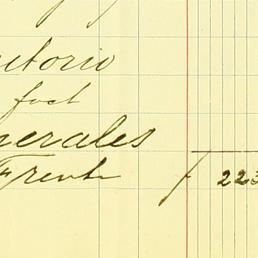 ritorio
fact
nerales
Frente / 223